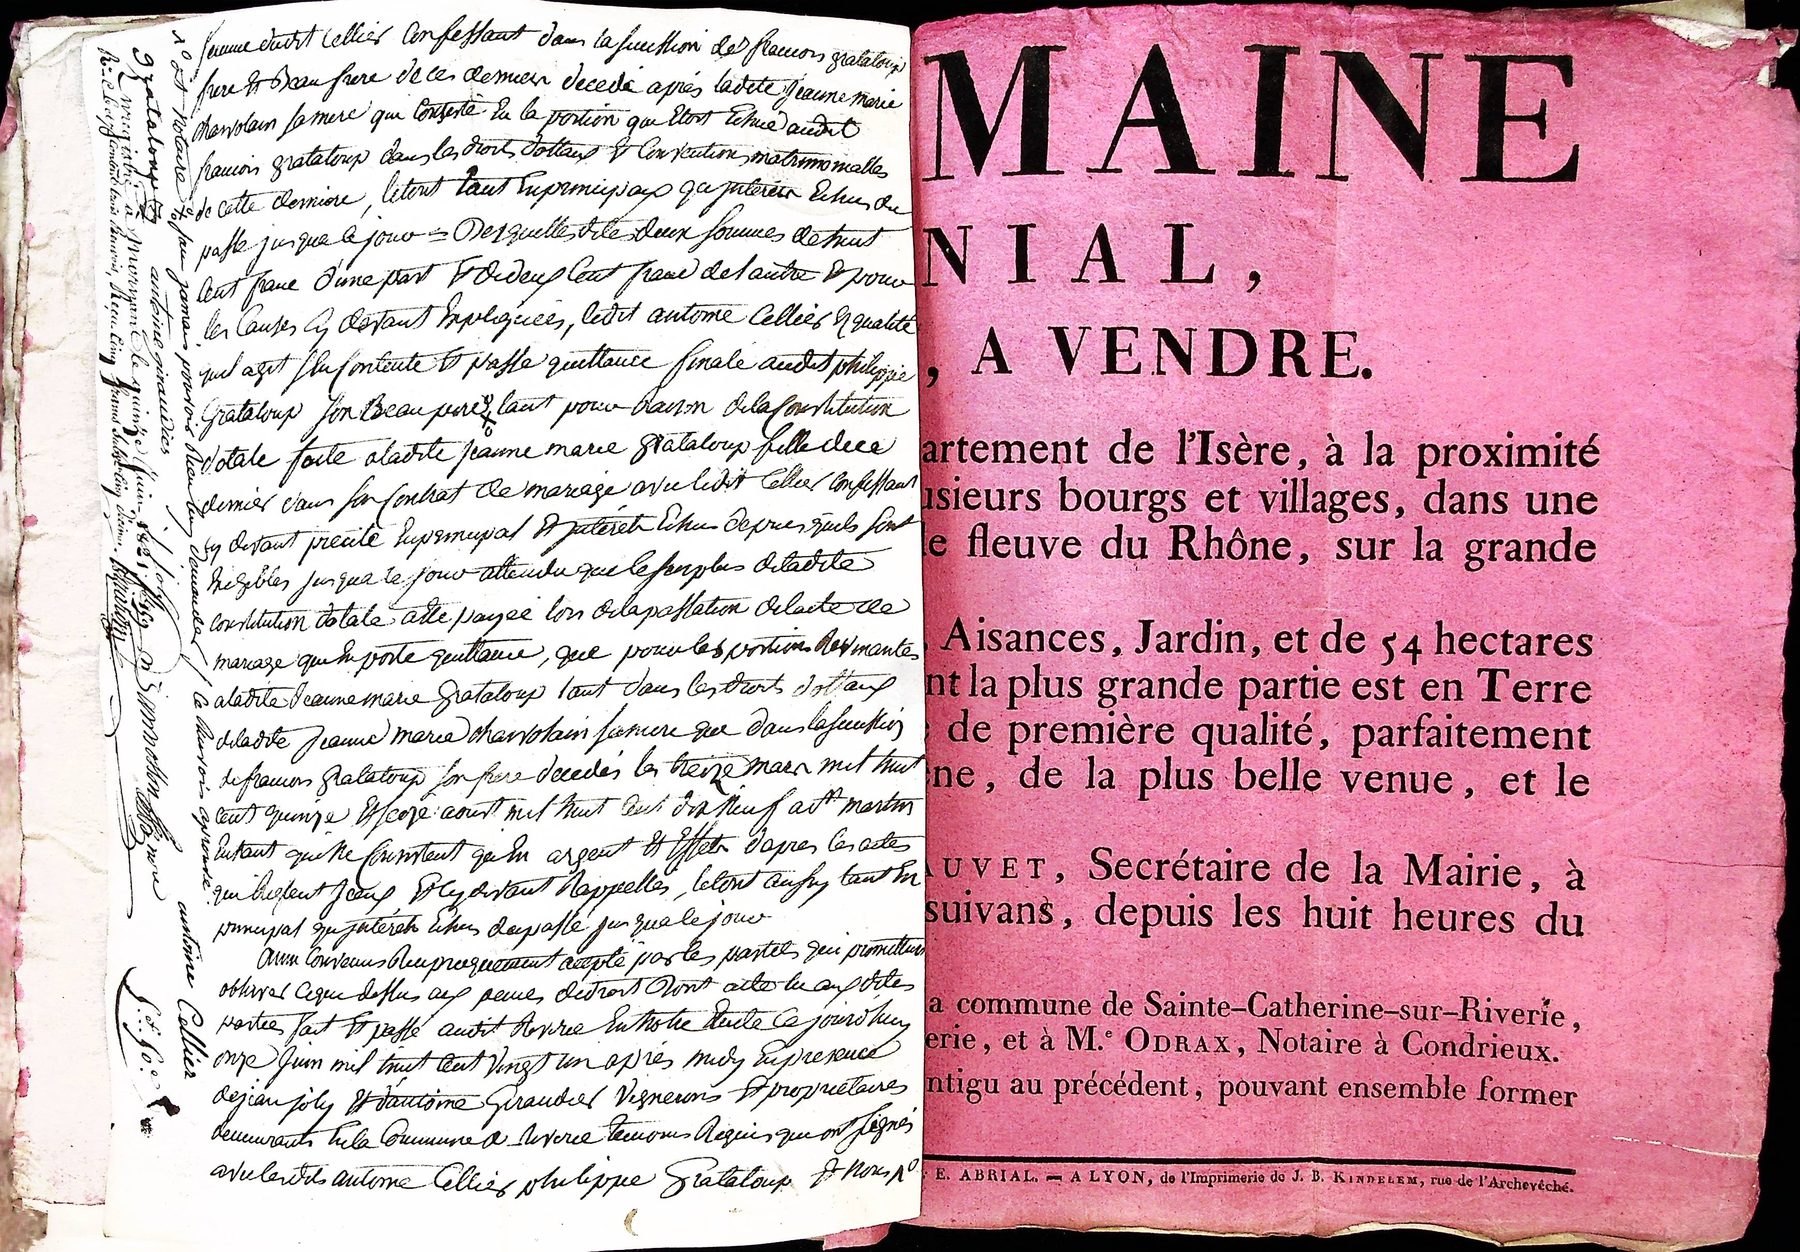 femme dudit Cellier Confessant dans la suession de francois grataloup
frere et Beau frere de ces dernier decedé après ladite Jeanne marie
charvolain sa mere que Consiste En la portion que Etoit Echue audit
francois grataloup dans les droits dottaux et Conventions matrimonialles
de cette derniere, le tout tant En principaux qu'jnterets Echus du
passé jusque a ce jour = Desquelles dites deux sommes de huit
Cent franc d'une part et de deux Cent franc de l'autre et pour
les Causes Cy devant Expliquées, ledit antoine Cellier En qualité
quil agit s'En Contente et passe quittance finale audit philippe
Grataloup son Beau pere tant pour Raison de la Constitution
dotale faite a ladite Jeanne marie grataloup fille de ce
dernier dans son Contrat de mariage avec ledit Cellier Confessant
cy devant precité En principal et jnterets Echus depuis quils sont
Exigibles jusqua ce jour attendu que le surplus de ladite
constitution dotale a été payée lors de la passation de l'acte de
mariage qui En porte quittance, que pour les portions Revenantes
a ladite Jeanne marie Grataloup tant dans les droits dottaux
de ladite Jeanne marie charvolain sa mere que dans la suession
de francois Grataloup son frere decedés les treize mars mil huit
cent quinze et seize aout mil huit cent dix neuf a St martin
En tant qu'ils ne Consistent qu'En argent et Effets d'apres les actes
qui Reglent Iceux, Et Cy devant Rappelles, le tout aussy tant En
principal qu'jnterets Echus du passé jusqua ce jour
Ainsi Convenus Reciproquement accepté par les parties qui promettent
observer ce que dessus aux peines de droit Dont acte lu aux dites
parties fait et passé audit Riverie En notre Etude Ce jourd'huy
onze Juin mil huit Cent Vingt un après midy En presence
de jean joly et d'antoine Giraudier Vignerons et proprietaires
demeurants En la Commune de Riverie temoins Requis qui ont signés
avec lesdits antoine Cellier philippe Grataloup et nous No
Grataloup
antoine giraudier
joly
antoine Cellier
MAINE
NIAL,
, A VENDRE.
artement de l'Isère, à la proximité
usieurs bourgs et villages, dans une
e fleuve du Rhône, sur la grande
, Aisances, Jardin, et de 54 hectares
nt la plus grande partie est en Terre
de première qualité, parfaitement
ne, de la plus belle venue, et le
AUVET, Secrétaire de la Mairie, à
suivans, depuis les huit heures du
a commune de Sainte-Catherine-sur-Riverie,
erie, et à M.e ODRAX, Notaire à Condrieux.
ntigu au précédent, pouvant ensemble former
E. ABRIAL. — A LYON, de l'Imprimerie de J. B. KINDELEM, rue de l'Archevêché.